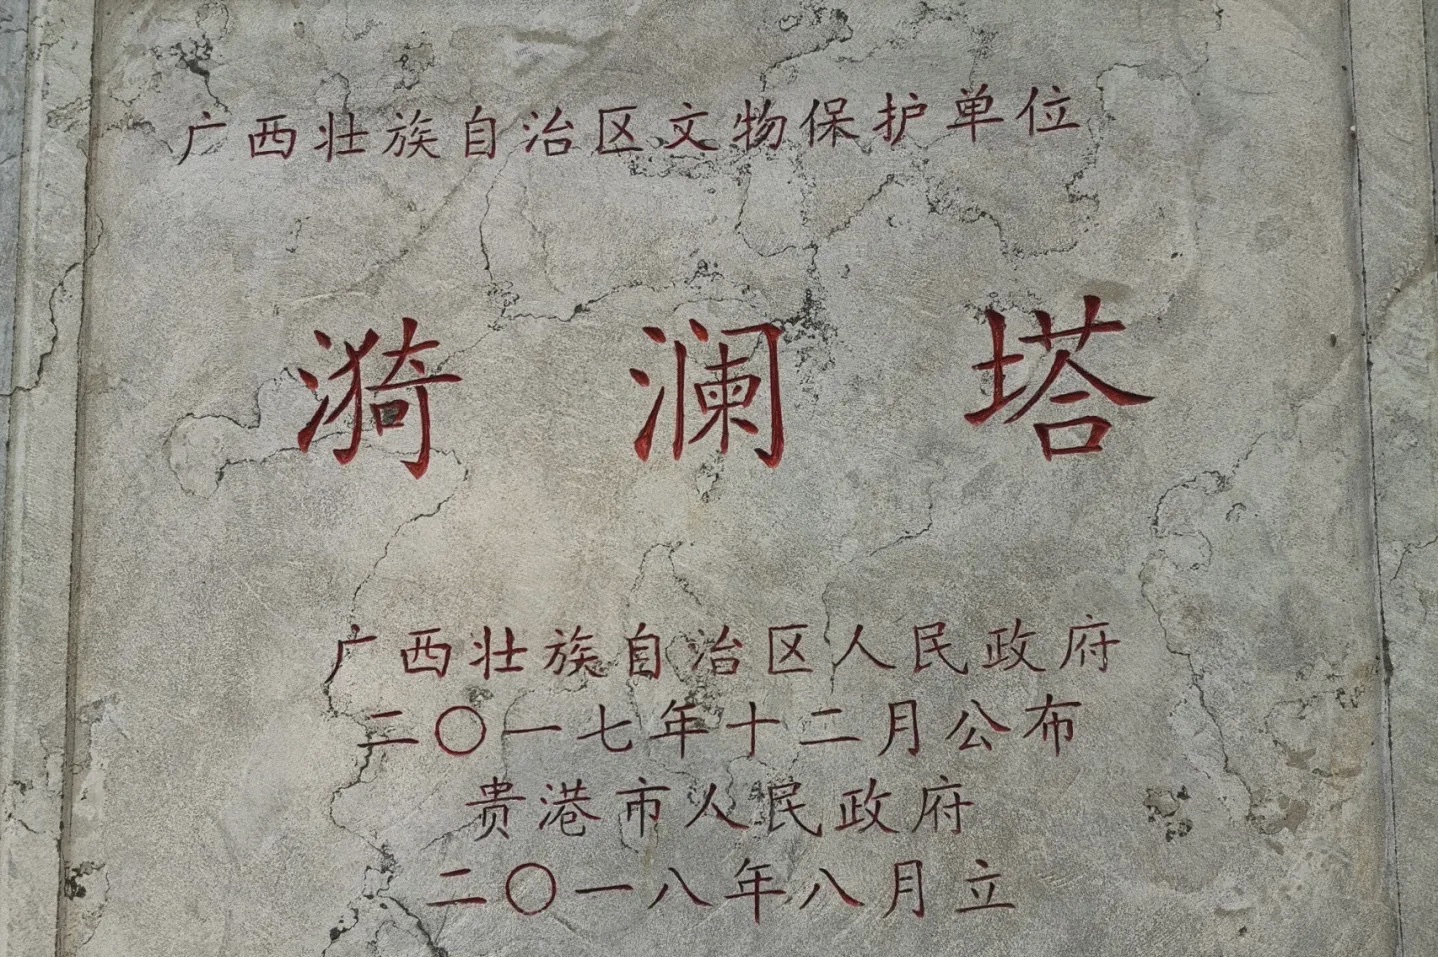 广西壮族自治区文物保护单位
漪澜塔
广西壮族自治区人民政府
二〇一七年十二月公布
贵港市人民政府
二〇一八年八月立